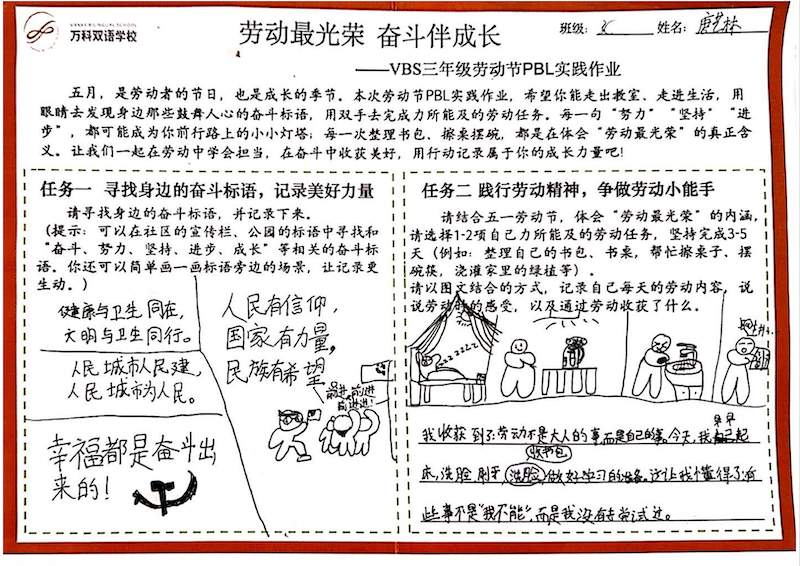 VANKE BILINGUAL SCHOOL
万科双语学校
劳动最光荣 奋斗伴成长
班级： 姓名：
——VBS三年级劳动节PBL实践作业
五月，是劳动者的节日，也是成长的季节。本次劳动节PBL实践作业，希望你能走出教室、走进生活，用
眼睛去发现身边那些鼓舞人心的奋斗标语，用双手去完成力所能及的劳动任务。每一句“努力”“坚持”“进
步”，都可能成为你前行路上的小小灯塔；每一次整理书包、擦桌摆碗，都是在体会“劳动最光荣”的真正含
义。让我们一起在劳动中学会担当，在奋斗中收获美好，用行动记录属于你的成长力量吧！
任务一 寻找身边的奋斗标语，记录美好力量
请寻找身边的奋斗标语，并记录下来。
（提示：可以在社区的宣传栏、公园的标语中寻找和
“奋斗、努力、坚持、进步、成长”等相关的奋斗标
语。你还可以简单画一画标语旁边的场景，让记录更
生动。）
健康与卫生同在，
文明与卫生同行。
人民城市人民建，
人民城市为人民。
幸福都是奋斗出
来的！
人民有信仰，
国家有力量，
民族有希望
前进 前进
前进进！
任务二 践行劳动精神，争做劳动小能手
请结合五一劳动节，体会“劳动最光荣”的内涵，
请选择1-2项自己力所能及的劳动任务，坚持完成3-5
天（例如：整理自己的书包、书桌，帮忙擦桌子、摆
碗筷，浇灌家里的绿植等）。
请以图文结合的方式，记录自己每天的劳动内容，说
说劳动时的感受，以及通过劳动收获了什么。
zzzzzz
我收获到了劳动不是大人的事而是自己的事。今天，我早早起
床，洗脸，刷牙，收书包，做好学习的准备。这让我懂得了有
些事不是“我不能”，而是我没有去尝试过。